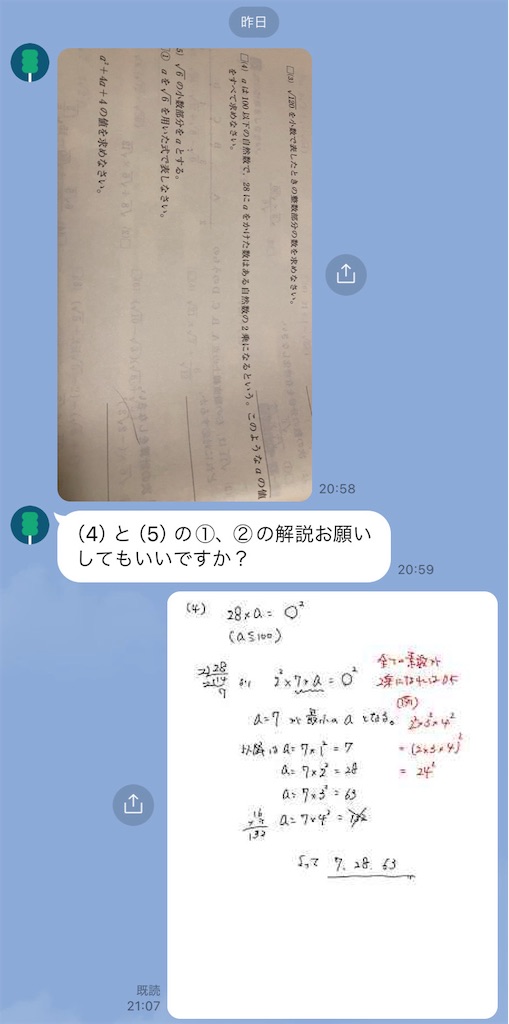 昨日
□(3) √120 を小数で表したときの整数部分の数を求めなさい。
□(4) a は 100 以下の自然数で、28 に a をかけた数はある自然数の 2 乗になるという。このような a の値
をすべて求めなさい。
5) √6 の小数部分を a とする。
① a を √6 を用いた式で表しなさい。
a²+4a+4 の値を求めなさい。
20:58
(4) と (5) の①、②の解説お願い
してもいいですか?
20:59
(4) 28×a = ○²
(a≦100)
2)28
2)14
7
より 2²×7×a = ○²
全ての素数が
2乗になればOK
(例)
2²×3²×4²
= (2×3×4)²
= 24²
a=7 が最小の a となる。
以降は a = 7×1² = 7
a = 7×2² = 28
a = 7×3² = 63
a = 7×4² = 132
16
×7
132
よって 7. 28. 63
既読
21:07